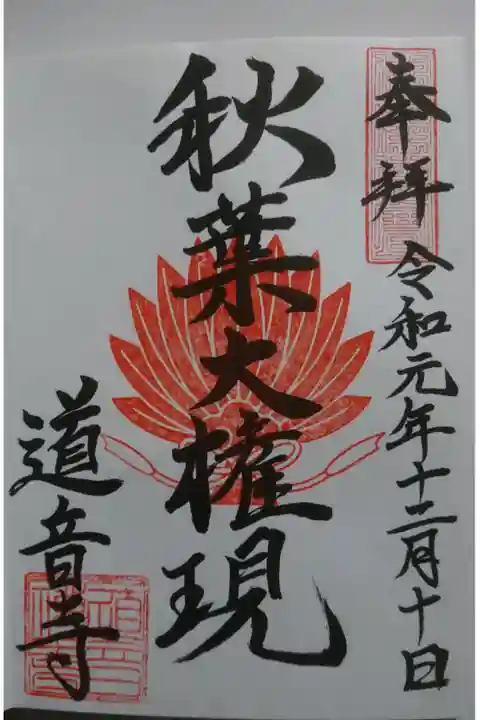 奉拝 令和元年十二月十日
秋葉大権現
道音寺